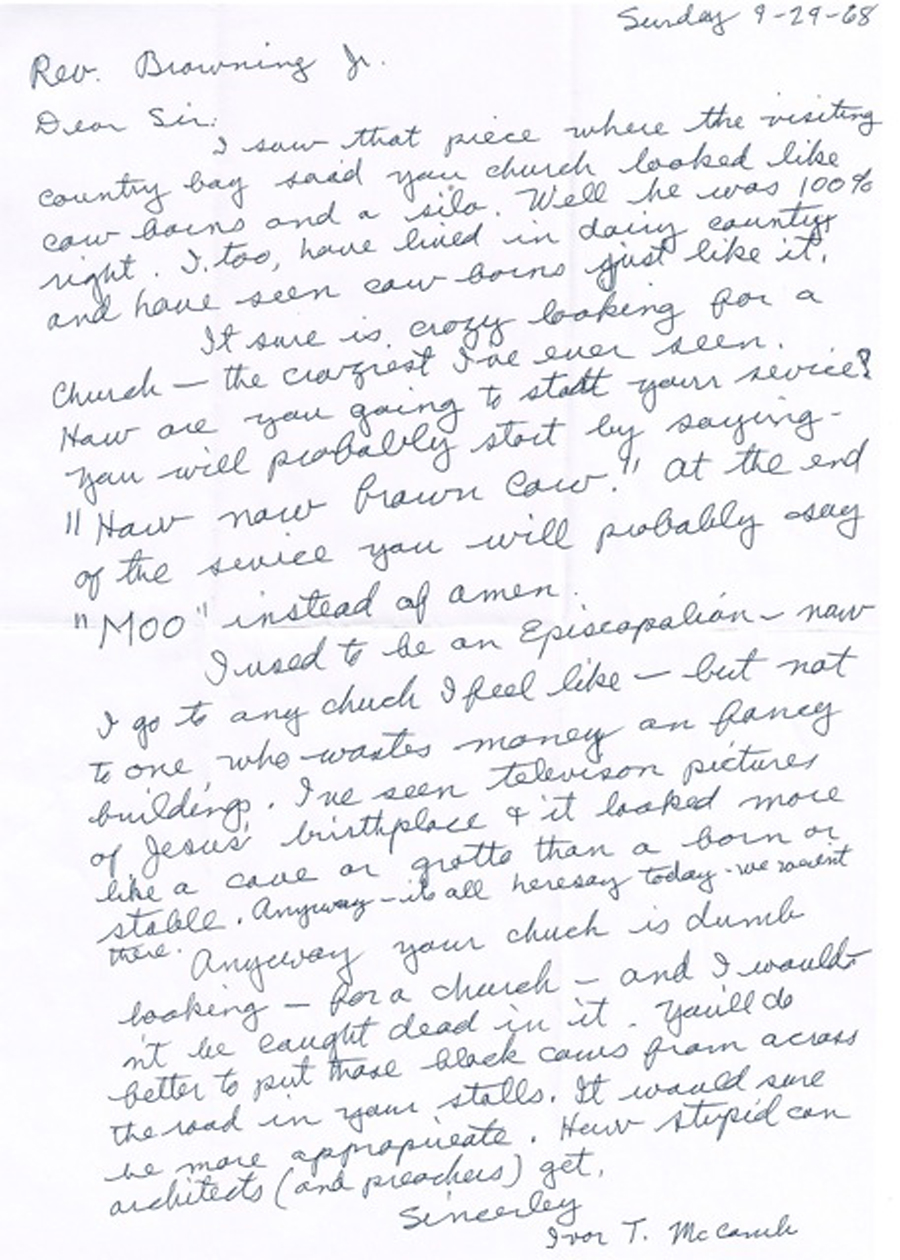 Sunday 9-29-68
Rev. Browning Jr.
Dear Sir:
I saw that piece where the visiting
country boy said you church looked like
cow barns and a silo. Well he was 100%
right. I, too, have lived in dairy country
and have seen cow barns just like it.
It sure is crazy looking for a
Church — the craziest I've ever seen.
How are you going to start your sevice?
You will probably start by saying-
"How now brown cow." At the end
of the sevice you will probably say
"MOO" instead of amen.
I used to be an Episcopalian - now
I go to any chuch I feel like — but not
to one who wastes money on fancy
buildings. I've seen televison pictures
of Jesus' birthplace & it looked more
like a cave or grotto than a barn or
stable. Anyway - its all heresay today - we weren't
there.
Anyway your chuch is dumb
looking — for a church — and I would-
n't be caught dead in it. You'll do
better to put those black cows from across
the road in your stalls. It would sure
be more appropricate. How stupid can
architects (and preachers) get.
Sincerley
Ivor T.